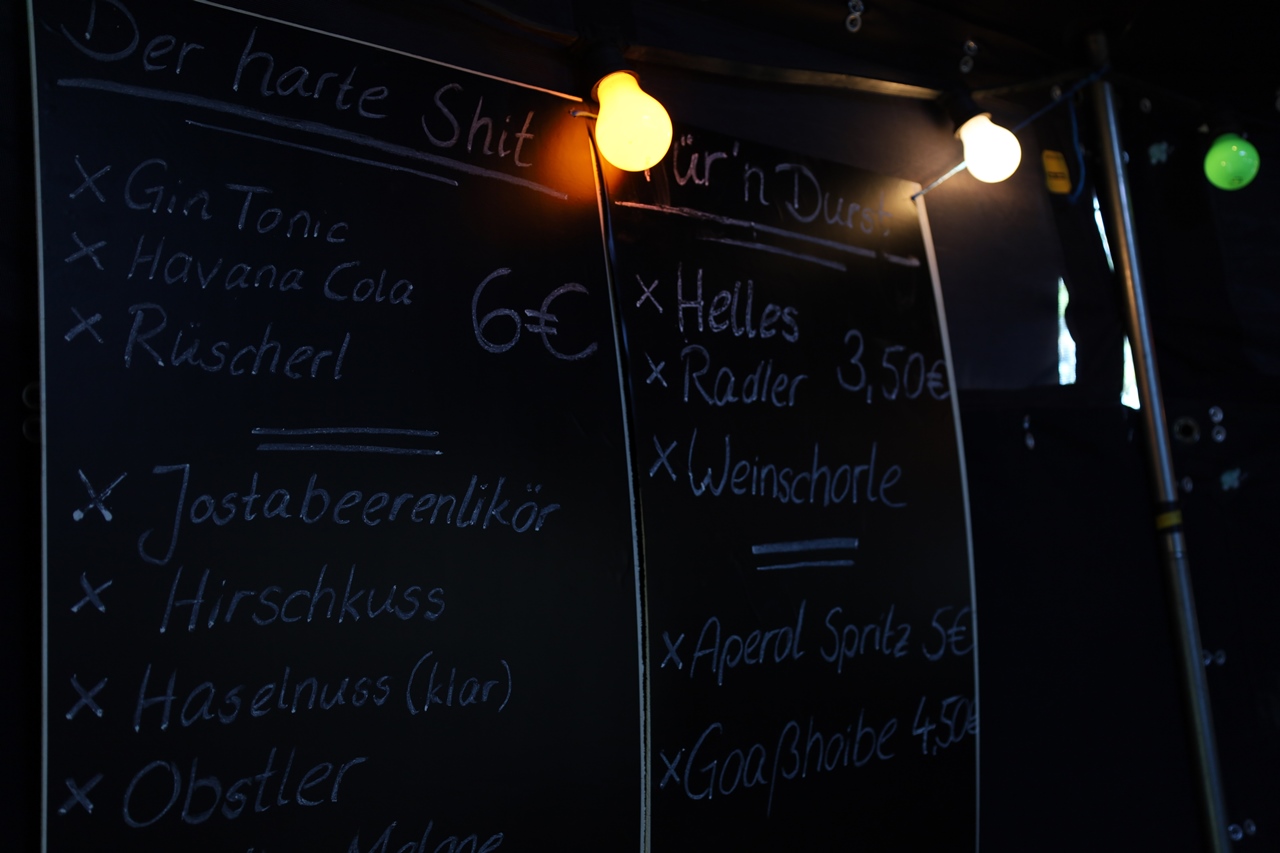 Der harte Shit
x Gin Tonic
x Havana Cola
x Rüscherl
6€
x Jostabeerenlikör
x Hirschkuss
x Haselnuss (klar)
x Obstler
Für'n Durst
x Helles
x Radler
3,50€
x Weinschorle
x Aperol Spritz 5€
x Goaßhoibe 4,50€